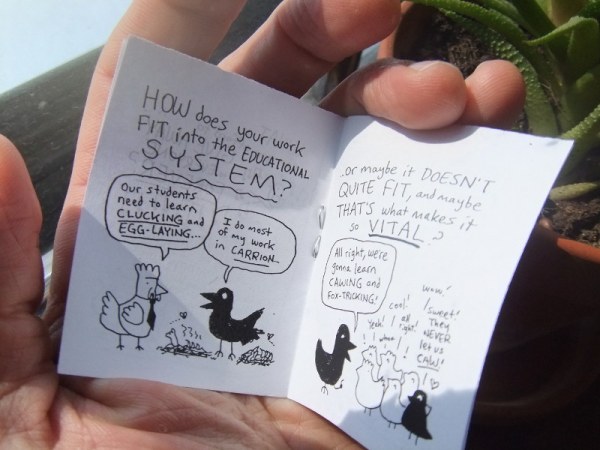 HOW does your work
FIT into the EDUCATIONAL
SYSTEM?
Our students
need to learn
CLUCKING and
EGG-LAYING...
I do most
of my work
in CARRION...
...or maybe it DOESN'T
QUITE FIT, and maybe
THAT'S what makes it
so VITAL?
All right, we're
gonna learn
CAWING and
FOX-TRICKING!
wow!
cool!
sweet!
Yeah!
all
right!
They
NEVER
let us
CAW!